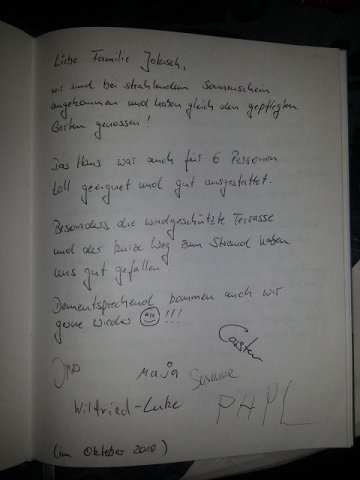 Liebe Familie Jokisch,
wir sind bei strahlendem Sonnenschein
angekommen und haben gleich den gepflegten
Garten genossen!
Das Haus war auch für 6 Personen
toll geeignet und gut ausgestattet.
Besonders die windgeschützte Terrasse
und der kurze Weg zum Strand haben
uns gut gefallen.
Dementsprechend kommen auch wir
gerne wieder !!!
Carsten
Ines Maja Susanne
Wilfried-Luke
(im Oktober 2010)